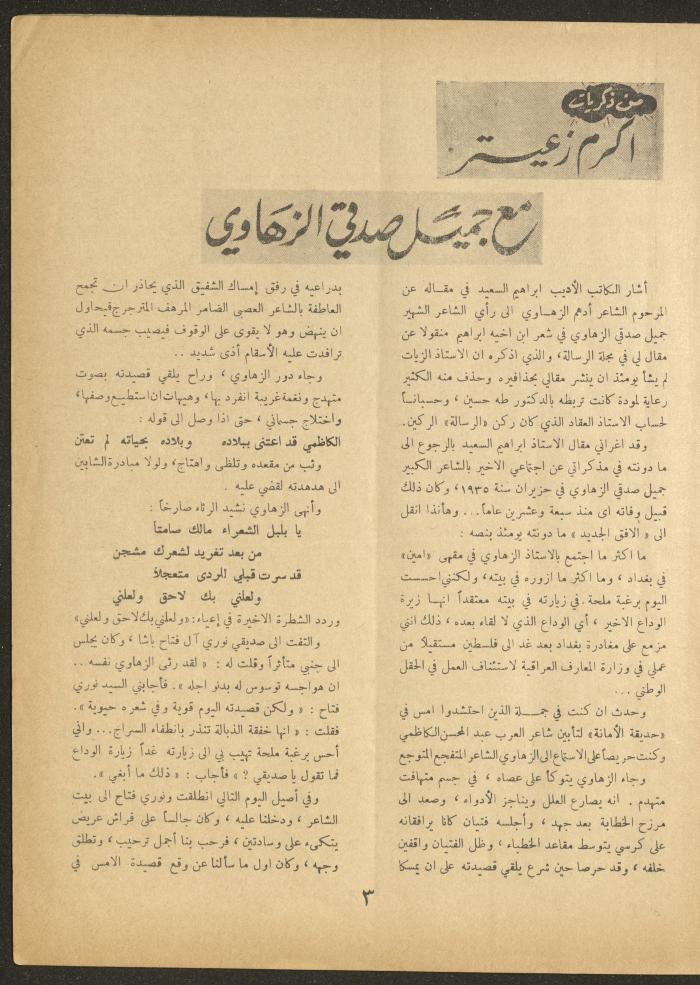 من ذكريات
اكرم زعيتر
مع جميل صدقي الزهاوي
أشار الكاتب الأديب ابراهيم السعيد في مقاله عن
المرحوم الشاعر أدهم الزهاوي الى رأي الشاعر الشهير
جميل صدقي الزهاوي في شعر ابن اخيه ابراهيم منقولا عن
مقال لي في مجلة الرسالة، والذي اذكره ان الاستاذ الزيات
لم يشأ يومئذ ان ينشر مقالي بحذافيره وحذف منه الكثير
رعاية لمودة كانت تربطه بالدكتور طه حسين ، وحسباناً
لحساب الاستاذ العقاد الذي كان ركن «الرسالة» الركين.
وقد اغراني مقال الاستاذ ابراهيم السعيد بالرجوع الى
ما دونته في مذكراتي عن اجتماعي الاخير بالشاعر الكبير
جميل صدقي الزهاوي في حزيران سنة ١٩٣٥، وكان ذلك
قبيل وفاته اى منذ سبعة وعشرين عاماً... وهأنذا انقل
الى « الافق الجديد » ما دونته يومئذ بنصه :
ما اكثر ما اجتمع بالاستاذ الزهاوي في مقهى «امين»
في بغداد ، وما اكثر ما ازوره في بيته، ولكنني احسست
اليوم برغبة ملحة في زيارته في بيته معتقداً انها زيرة
الوداع الاخير ، أي الوداع الذي لا لقاء بعده ، ذلك انني
مزمع على مغادرة بغداد بعد غد الى فلسطين مستقيلاً من
عملي في وزارة المعارف العراقية لاستئناف العمل في الحقل
الوطني ...
وحدث ان كنت في جملة الذين احتشدوا امس في
«حديقة الأمانة» لتأبين شاعر العرب عبد المحسن الكاظمي
وكنت حريصاً على الاستماع الى الزهاوي الشاعر المتفجع المتوجع
وجاء الزهاوي يتوكأ على عصاه ، في جسم متهافت
متهدم . انه يصارع العلل ويناجز الأدواء ، وصعد الى
مرزح الخطابة بعد جهد ، وأجلسه فتيان كانا يرافقانه
على كرسي يتوسط مقاعد الخطباء ، وظل الفتيان واقفين
خلفه ، وقد حرصا حين شرع يلقي قصيدته على ان يمسكا
بدراعيه في رفق إمساك الشفيق الذي يحاذر ان تجمح
العاطفة بالشاعر العصبى الضامر المرهف المترجرج فيحاول
ان ينهض وهو لا يقوى على الوقوف فيصيب جسمه الذي
ترافدت عليه الأسقام أذى شديد ..
وجاء دور الزهاوي ، وراح يلقي قصيدته بصوت
متهدج ونغمة غريبة انفرد بها، وهيهات ان استطيع وصفها،
واختلاج جسماني ، حتى اذا وصل الى قوله :
الكاظمي قد اعتنى ببلاده وبلاده بحياته لم تعتن
وثب من مقعده وتلظى واهتاج، ولولا مبادرة الشابين
الى هدهدته لقضي عليه .
وأنهى الزهاوي نشيد الرثاء صارخاً :
يا بلبل الشعراء مالك صامتاً
من بعد تغريد لشعرك مشجن
قد سرت قبلي للردى متعجلاً
ولعلني بك لاحق ولعلني
وردد الشطرة الاخيرة في إعياء: «ولعلني بك لاحق ولعلني»
والتفت الى صديقي نوري آل فتاح باشا ، وكان يجلس
الى جنبي متأثراً وقلت له : « لقد رثى الزهاوي نفسه ...
ان هواجسه توسوس له بدنو اجله ». فأجابني السيد نوري
فتاح : « ولكن قصيدته اليوم قوية وفي شعره حيوية ».
فقلت : « انها خفقة الذبالة تنذر بانطفاء السراج... واني
أحس برغبة ملحة تهيب بي الى زيارته غداً زيارة الوداع
فما تقول يا صديقي ؟ » فأجاب : « ذلك ما أبغي ».
وفي أصيل اليوم التالي انطلقت ونوري فتاح الى بيت
الشاعر ، ودخلنا عليه ، وكان جالساً على فراش عريض
يتكىء على وسادتين ، فرحب بنا أجمل ترحيب ، وتطلق
وجهه ، وكان اول ما سألنا عن وقع قصيدة الامس في
٣